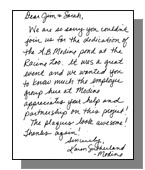 Dear Jim & Sarah,
We are so sorry you couldn't
join us for the dedication of
the A.B. Modine pond at the
Racine Zoo. It was a great
event and we wanted you
to know much the employee
group here at Modine
appreciates your help and
partnership on this project!
The plaques look awesome!
Thanks again!
Sincerely,
Sutherland
- Modine